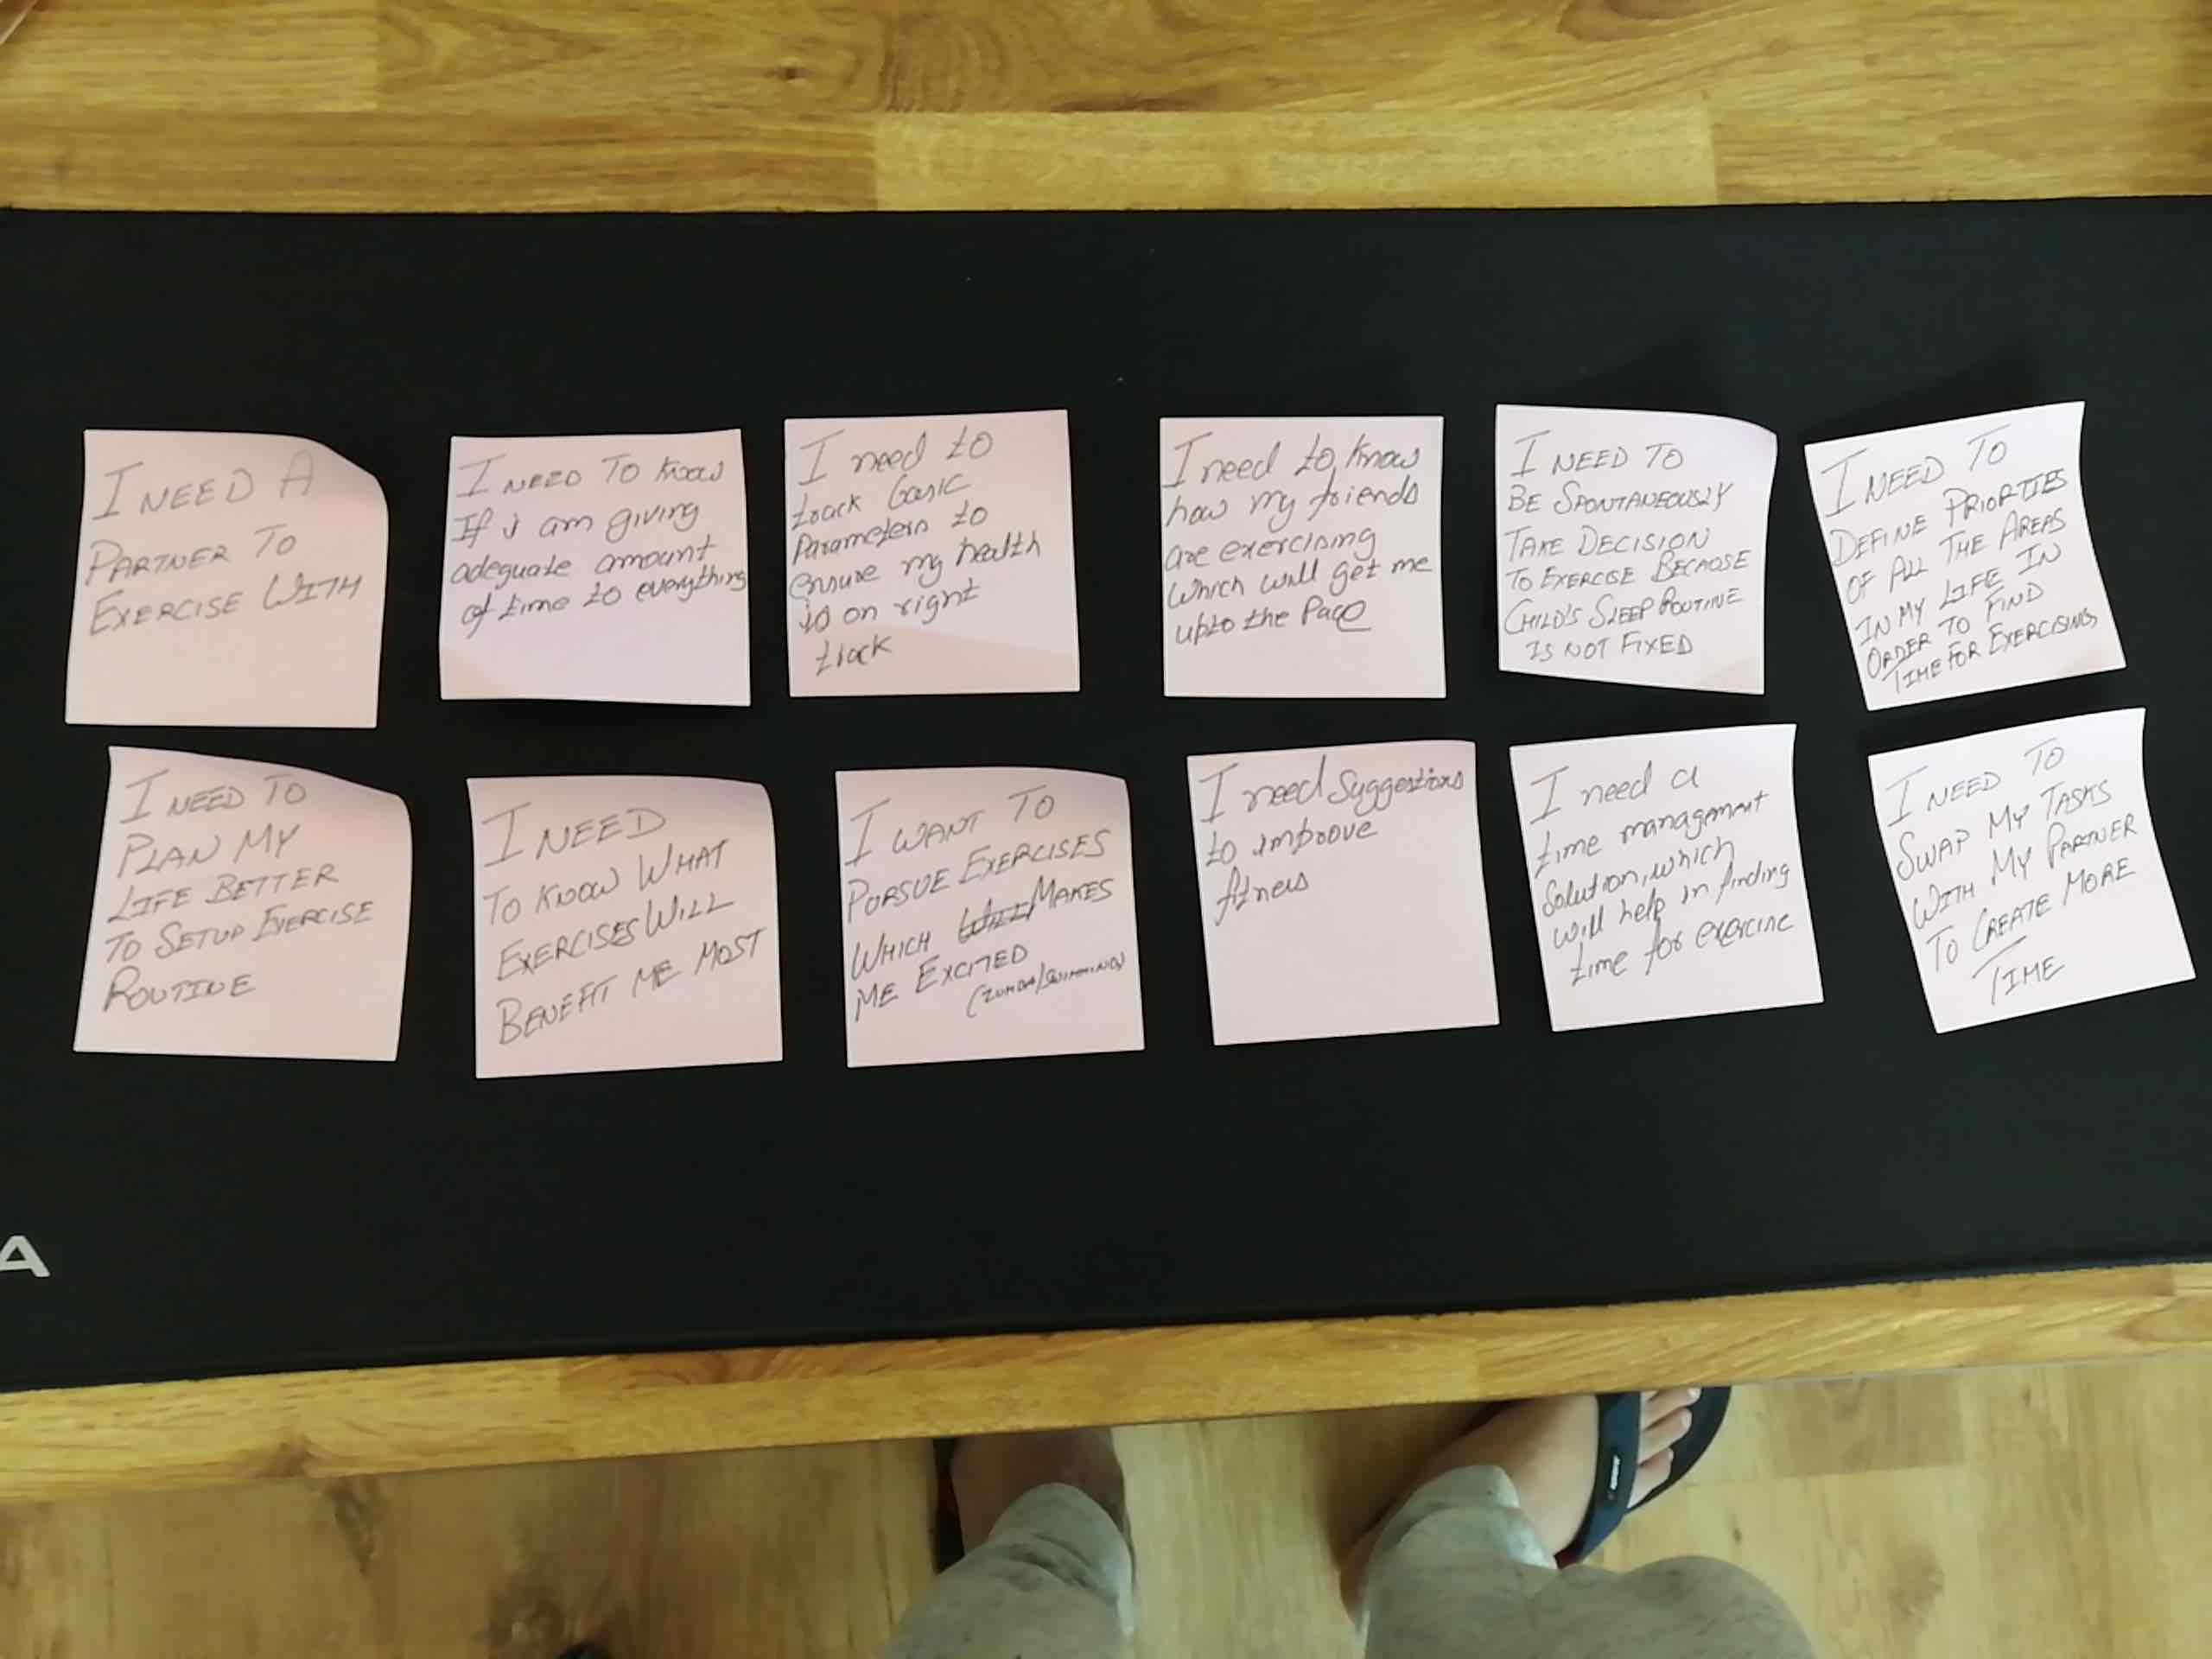 I NEED A
PARTNER TO
EXERCISE WITH
I NEED TO Know
If i am giving
adequate amount
of time to everything
I need to
track basic
Parameters to
ensure my health
is on right
track
I need to know
how my friends
are exercising
which will get me
upto the Pace
I NEED TO
BE SPONTANEOUSLY
TAKE DECISION
TO EXERCISE BECAUSE
CHILD'S SLEEP ROUTINE
IS NOT FIXED
I NEED TO
DEFINE PRIORTIES
OF ALL THE AREAS
IN MY LIFE IN
ORDER TO FIND
TIME FOR EXERCISING
I NEED TO
PLAN MY
LIFE BETTER
TO SETUP EXERCISE
ROUTINE
I NEED
TO KNOW WHAT
EXERCISES WILL
BENEFIT ME MOST
I WANT TO
PURSUE EXERCISES
WHICH WILL MAKES
ME EXCITED
(ZUMBA/SWIMMING)
I need suggestions
to improve
fitness
I need a
time management
solution, which
will help in finding
time for exercise
I NEED TO
SWAP MY TASKS
WITH MY PARTNER
TO CREATE MORE
TIME
A